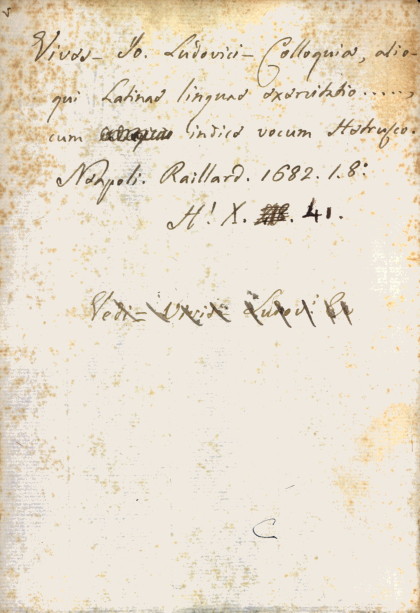 Vives - Jo. Ludovici - Colloquia, alio-
qui Latinae linguae exercitatio.....,
cum indice vocum Hetrusco.
Neapoli. Raillard. 1682. 1. 8:
H! X. 41.
Vedi -